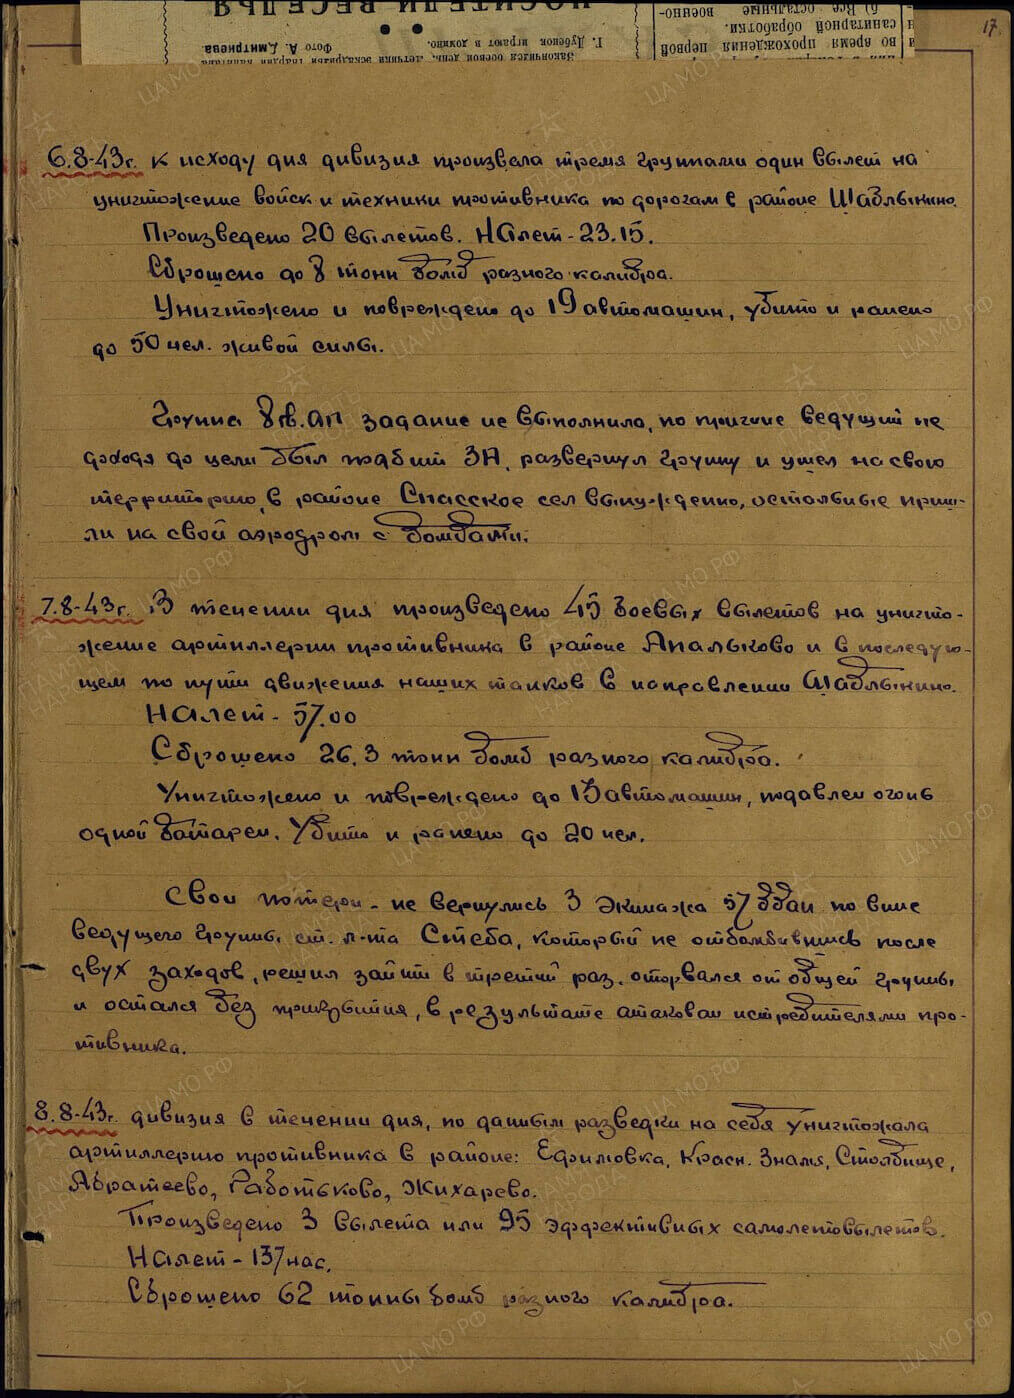 17.
НОСИТЕЛИ ВЕСЕЛЬЯ
Закончился боевой день. Летчики эскадрильи гвардии капитана
Г. Дубенок играют в домино.
Фото А. Дмитриева
во время прохождения первой
санитарной обработки.
б) Все остальные военно-
6.8-43г. К исходу дня дивизия произвела тремя группами один вылет на
уничтожение войск и техники противника по дорогам в районе Шаблыкино.
Произведено 20 вылетов. Налет - 23.15.
Сброшено до 8 тонн бомб разного калибра.
Уничтожено и повреждено до 19 автомашин, убито и ранено
до 50 чел. живой силы.
Группа 8 гв. ап задание не выполнила, по причине ведущий не
доходя до цели был подбит ЗА, развернул группу и ушел на свою
территорию, в районе Спасское сел вынужденно, остальные приш-
ли на свой аэродром с бомбами.
7.8-43г. В течении дня произведено 45 боевых вылетов на уничто-
жение артиллерии противника в районе Апальково и в последую-
щем по пути движения наших танков в направлении Шаблыкино.
Налет - 57.00
Сброшено 26,3 тонн бомб разного калибра.
Уничтожено и повреждено до 15 автомашин, подавлен огонь
одной батареи. Убито и ранено до 20 чел.
Свои потери - не вернулись 3 экипажа 57 ббап по вине
ведущего группы ст. л-та Стеба, который не отбомбившись после
двух заходов, решил зайти в третий раз, оторвался от общей группы
и остался без прикрытия, в результате атакован истребителями про-
тивника.
8.8-43г. дивизия в течении дня, по даным разведки на себя уничтожала
артиллерию противника в районе: Ефимовка, Красн. Знамя, Столбище,
Абратеево, Работьково, Жихарево.
Произведено 3 вылета или 95 эффективных самолетовылетов.
Налет - 137 час.
Сброшено 62 тонны бомб разного калибра.